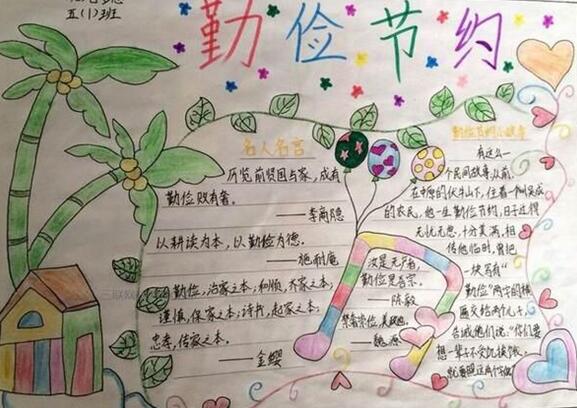 五(1)班
勤俭节约
名人名言
历览前贤国与家，成有
勤俭败有奢。
——李商隐
以耕读为本，以勤俭为德。
——施耐庵
勤俭，治家之本；和顺，齐家之本；
谨慎，保家之本；诗书，起家之本；
忠孝，传家之本。
——金缨
汝是无产者，
勤俭是吾宗。
——陈毅
——魏源
勤俭节约小故事
有这么一
个民间故事，从前，
在中原的伏牛山下，住着一个叫吴成
的农民，他一生勤俭节约，日子过得
无忧无愁，十分美满。相
传他临时，曾把
一块写有“
勤俭”两字的横
匾交给两个儿子，
告诫他们说：“你们要
想一辈子不受饥挨饿，
就要照这两个字做”